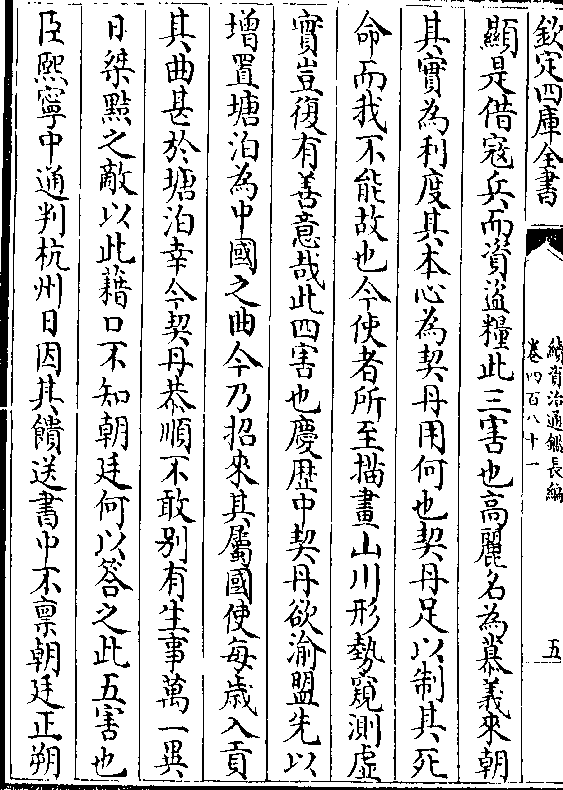 欽定四庫全書
續資治通鑑長編
卷四百八十一
五
顯是借寇兵而資盜糧此三害也高麗名為慕義來朝
其實為利度其本心為契丹用何也契丹足以制其死
命而我不能故也今使者所至描畫山川形勢窺測虛
實豈復有善意哉此四害也慶歴中契丹欲渝盟先以
增置塘泊為中國之曲今乃招來其屬國使每歲入貢
其曲甚於塘泊幸今契丹恭順不敢别有生事萬一異
日桀黠之敵以此藉口不知朝廷何以答之此五害也
臣熙寧中通判杭州日因其饋送書中不禀朝廷正朔